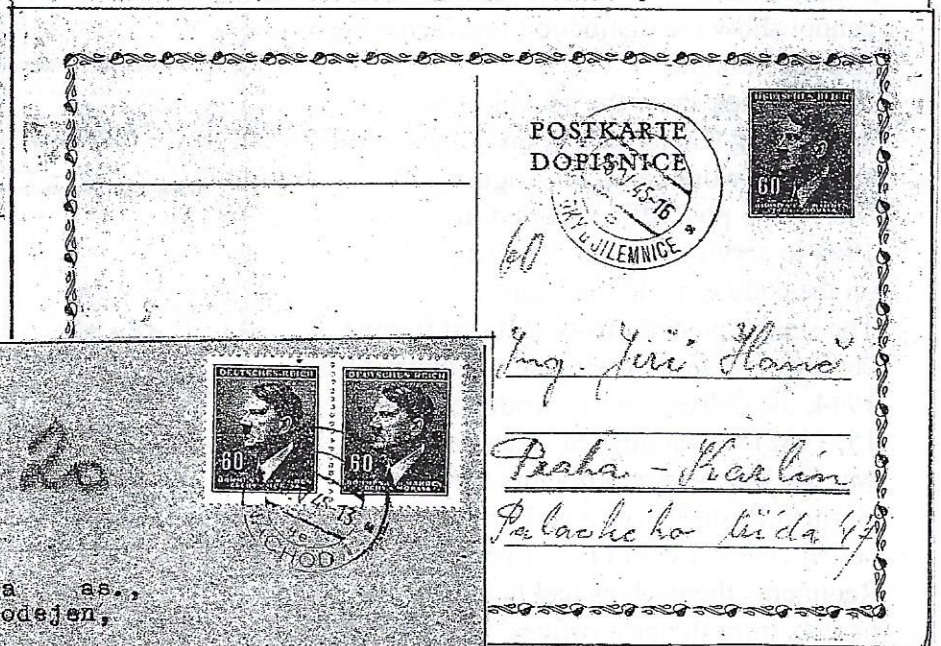 POSTKARTE
DOPISNICE
DEUTSCHES REICH
60
45-16
JILEMNICE *
60
Ing. Jiří Hanč
Praha - Karlín
Palackého třída 47
DEUTSCHES REICH
DEUTSCHES REICH
60
60
V 45-13
NÁCHOD 1
a as.,
odejen,